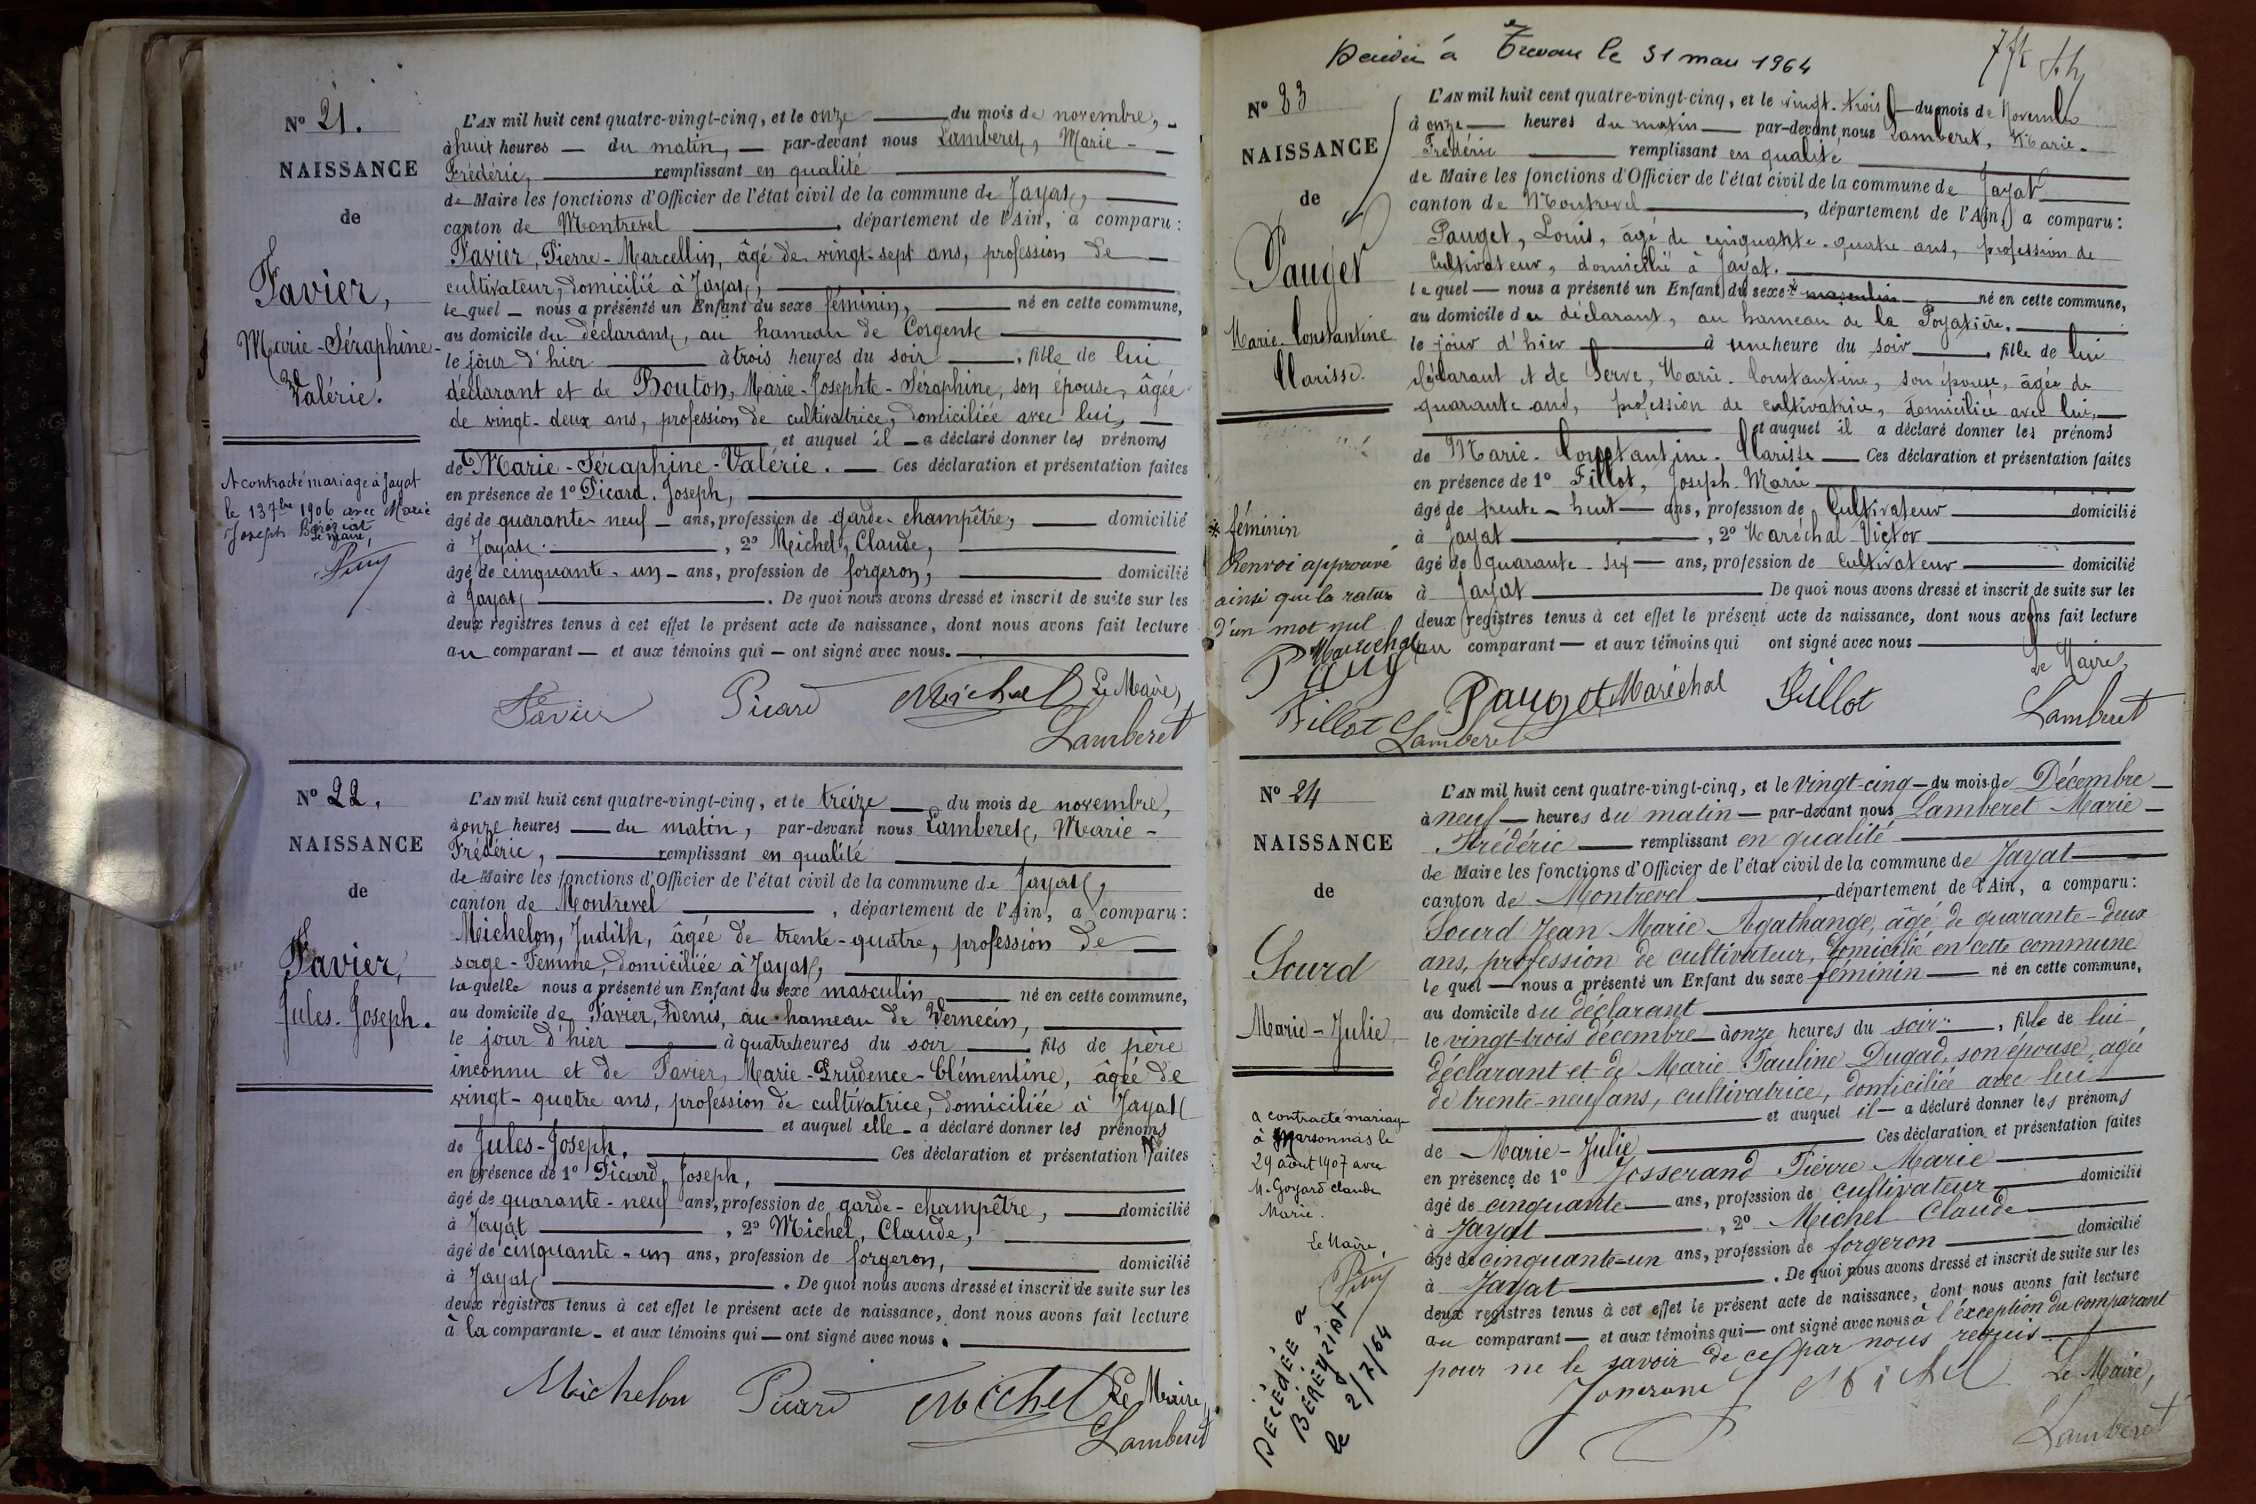 N° 21.
NAISSANCE
de
Favier,
Marie-Séraphine-
Valérie.
A contracté mariage à Jayat
le 13 7bre 1906 avec Marie
Joseph Bereziat
Le Maire,
L'AN mil huit cent quatre-vingt-cinq, et le onze du mois de novembre,
à huit heures du matin, par-devant nous Lamberet, Marie-
Frédéric, remplissant en qualité
de Maire les fonctions d'Officier de l'état civil de la commune de Jayat,
canton de Montrevel, département de l'Ain, a comparu:
Favier, Pierre-Marcellin, âgé de vingt-sept ans, profession de
cultivateur, domicilié à Jayat,
lequel nous a présenté un Enfant du sexe féminin, né en cette commune,
au domicile du déclarant, au hameau de Corgente
le jour d'hier à trois heures du soir, fille de lui
déclarant et de Bouton, Marie-Josephte-Séraphine, son épouse, âgée
de vingt-deux ans, profession de cultivatrice, domiciliée avec lui,
et auquel il a déclaré donner les prénoms
de Marie-Séraphine-Valérie. Ces déclaration et présentation faites
en présence de 1° Picard, Joseph,
âgé de quarante-neuf ans, profession de garde-champêtre, domicilié
à Jayat, 2° Michel, Claude,
âgé de cinquante-un ans, profession de forgeron, domicilié
à Jayat. De quoi nous avons dressé et inscrit de suite sur les
deux registres tenus à cet effet le présent acte de naissance, dont nous avons fait lecture
au comparant et aux témoins qui ont signé avec nous.
Favier Picard Michel Le Maire,
Lamberet
N° 22.
NAISSANCE
de
Favier,
Jules-Joseph.
L'AN mil huit cent quatre-vingt-cinq, et le treize du mois de novembre,
à onze heures du matin, par-devant nous Lamberet, Marie-
Frédéric, remplissant en qualité
de Maire les fonctions d'Officier de l'état civil de la commune de Jayat,
canton de Montrevel, département de l'Ain, a comparu:
Michelon, Judith, âgée de trente-quatre, profession de
sage-Femme, domiciliée à Jayat,
laquelle nous a présenté un Enfant du sexe masculin né en cette commune,
au domicile de Favier, Denis, au hameau de Vernecin,
le jour d'hier à quatre heures du soir fils de père
inconnu et de Favier, Marie-Prudence-Clémentine, âgée de
vingt-quatre ans, profession de cultivatrice, domiciliée à Jayat
et auquel elle a déclaré donner les prénoms
de Jules-Joseph. Ces déclaration et présentation faites
en présence de 1° Picard, Joseph,
âgé de quarante-neuf ans, profession de garde-champêtre, domicilié
à Jayat, 2° Michel, Claude,
âgé de cinquante-un ans, profession de forgeron, domicilié
à Jayat. De quoi nous avons dressé et inscrit de suite sur les
deux registres tenus à cet effet le présent acte de naissance, dont nous avons fait lecture
à la comparante et aux témoins qui ont signé avec nous.
Michelon Picard Michel Le Maire,
Lamberet
à le 31 mai 1964
N° 23
NAISSANCE
de
Pauget
Marie-Constantine
Clarisse.
* féminin
Renvoi approuvé
ainsi que la rature
d'un mot nul.
Marechal
Fillot Lamberet
L'AN mil huit cent quatre-vingt-cinq, et le vingt-trois du mois de Novembre
à onze heures du matin par-devant nous Lamberet, Marie-
Frédéric remplissant en qualité
de Maire les fonctions d'Officier de l'état civil de la commune de Jayat
canton de Montrevel, département de l'Ain, a comparu:
Pauget, Louis, âgé de cinquante-quatre ans, profession de
cultivateur, domicilié à Jayat.
lequel nous a présenté un Enfant du sexe * masculin né en cette commune,
au domicile du déclarant, au hameau de la Poyatière.
le jour d'hier à une heure du soir, fille de lui
déclarant et de Serve, Marie-Constantine, son épouse, âgée de
quarante ans, profession de cultivatrice, domiciliée avec lui,
et auquel il a déclaré donner les prénoms
de Marie-Constantine-Clarisse Ces déclaration et présentation faites
en présence de 1° Fillot, Joseph-Marie
âgé de trente-huit ans, profession de Cultivateur domicilié
à Jayat, 2° Maréchal Victor
âgé de quarante-six ans, profession de Cultivateur domicilié
à Jayat De quoi nous avons dressé et inscrit de suite sur les
deux registres tenus à cet effet le présent acte de naissance, dont nous avons fait lecture
au comparant et aux témoins qui ont signé avec nous
Le Maire,
Pauget Maréchal Fillot Lamberet
N° 24
NAISSANCE
de
Sourd
Marie-Julie
a contracté mariage
à Marsonnas le
29 août 1907 avec
M. Goyard Claude
Marie.
Le Maire,
DECEDÉE à
BÉRÉYZIAT
le 2/7/64
L'AN mil huit cent quatre-vingt-cinq, et le vingt-cinq du mois de Décembre
à neuf heures du matin par-devant nous Lamberet Marie
Frédéric remplissant en qualité
de Maire les fonctions d'Officier de l'état civil de la commune de Jayat
canton de Montrevel, département de l'Ain, a comparu:
Sourd Jean Marie Agathange, âgé de quarante-deux
ans, profession de cultivateur, domicilié en cette commune
lequel nous a présenté un Enfant du sexe féminin né en cette commune,
au domicile du déclarant
le vingt-trois décembre à onze heures du soir, fille de lui
déclarant et de Marie Pauline Dugad, son épouse, agée
de trente-neuf ans, cultivatrice, domiciliée avec lui
et auquel il a déclaré donner les prénoms
de Marie-Julie Ces déclaration et présentation faites
en présence de 1° Josserand Pierre Marie
âgé de cinquante ans, profession de cultivateur domicilié
à Jayat, 2° Michel Claude
âgé de cinquante-un ans, profession de forgeron domicilié
à Jayat. De quoi nous avons dressé et inscrit de suite sur les
deux registres tenus à cet effet le présent acte de naissance, dont nous avons fait lecture
au comparant et aux témoins qui ont signé avec nous à l'éxception du comparant
pour ne le savoir de ce par nous requis
Josserand Michel Le Maire,
Lamberet